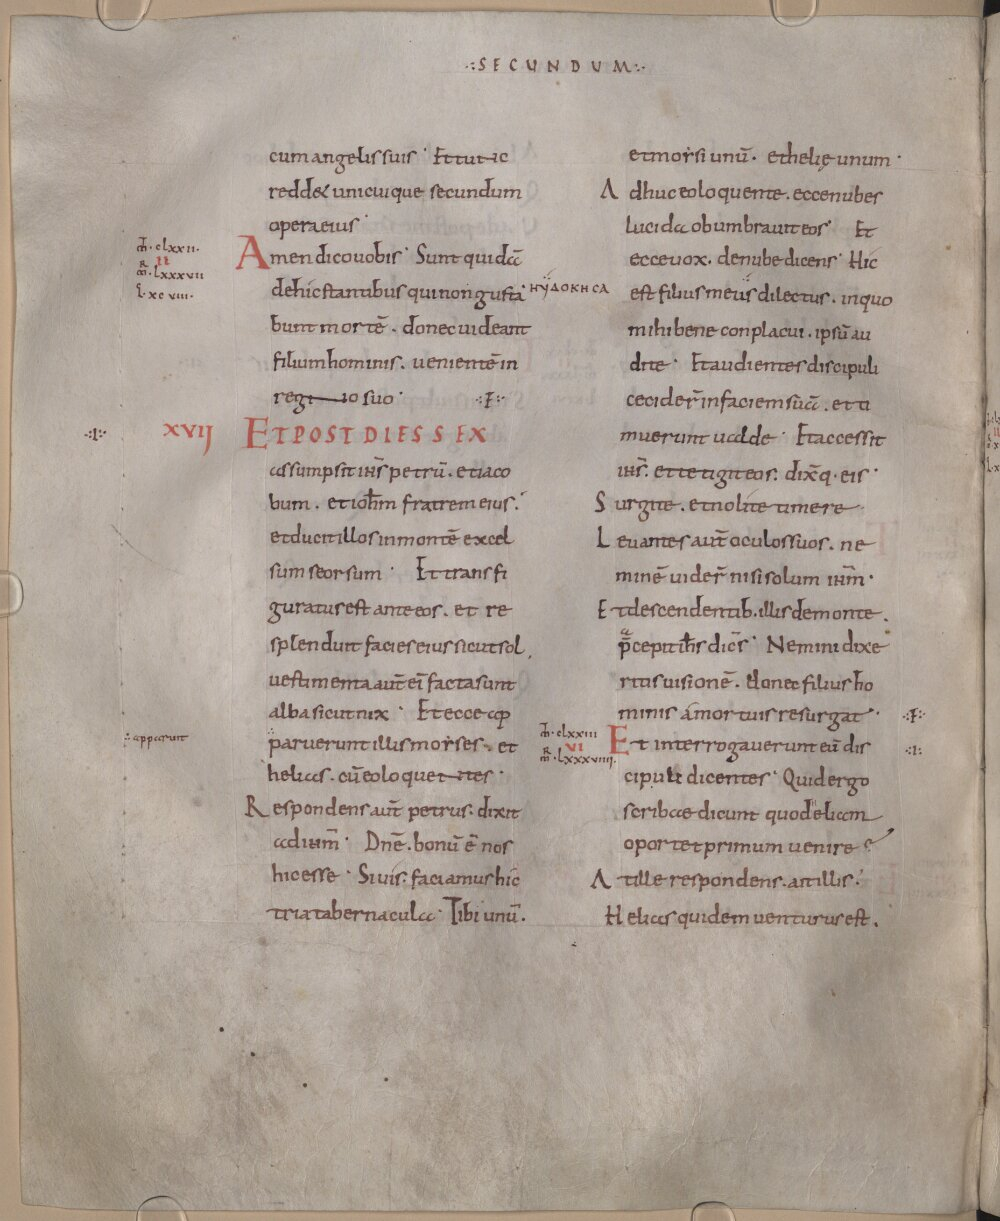 ·:SECUNDUM:·
cum angelis suis · Et tunc
reddet unicuique secundum
opera eius ·
m̄ · clxxii ·
II
m̄ · lxxxvii
l · xcviii ·
Amen dico vobis · Sunt quidā
de hic stantibus qui non gusta
bunt mortē . donec uideant
filium hominis . uenientē in
regno suo ·
XVII ET POST DIES SEX
assumpsit ih̄s petrū . et iaco
bum . et ioh̄m fratrem eius .
et ducit illos in montē excel
sum seorsum · Et transfi
guratus est ante eos . et re
splenduit facies eius sicut sol .
uestimenta aut̄ ei' facta sunt
alba sicut nix · Et ecce ap
apparuit
paruerunt illis moyses . et
helias . cū eo loquentes ·
Respondens aut̄ petrus . dixit
ad ihm̄ · Dn̄e . bonū ē nos
hic esse · Si uis . faciamus hic
tria tabernacula · Tibi unū .
et moysi unū . et helię unum ·
Adhuc eo loquente . ecce nubes
lucida obumbrauit eos · Et
ecce uox . de nube dicens · Hic
ΗΥΔΟΚΗСΑ
est filius meus dilectus . in quo
mihi bene conplacui . ipsū au
dite · Et audientes discipuli
cecider̄ in faciem suā . et ti
muerunt ualde · Et accessit
ih̄s . et tetigit eos . dixq̄ . eis ·
Surgite . et nolite timere
Leuantes aut̄ oculos suos . ne
minē uider̄ nisi solum ihm̄ ·
Et descendentib . illis de monte .
p̄cepit ih̄s dicēs · Nemini dixe
ritis uisionē . donec filius ho
minis a mortuis resurgat ·
m̄ · clxxiii
VI
m̄ · lxxxviiii .
Et interrogauerunt eū dis
cipuli dicentes · Quid ergo
scribae dicunt quod eliam
oportet primum uenire
At ille respondens . ait illis .
Helias quidem uenturus est .